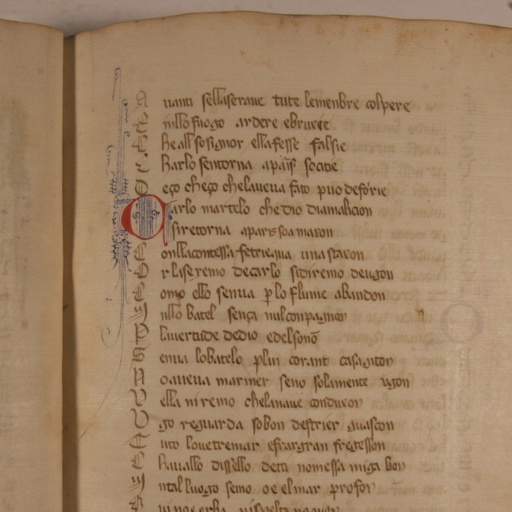 uanti sellaseraue tute lemenbre colpere
nillo fuogo ardere ebruere
he all so signor ella fesse falsie
harlo sentorna aparis so citie
eço cheço chelaueua fato p uio defórie
Carlo martelo che dio dia malicion
siretorna aparis soa maxon
onlla contessa fe triegua una staxon
r laseremo de carlo si diremo de ugon
omo ello senua p lo flume abandon
nllo batel sença nul conpagnon
la uertude de dio edel so nõ
enua lo batelo p lun corant
o aueua mariner seno solamente ugon
ella ni remo chelauaue conduxon
go reguarda so bon destrier guascon
uto lo ue tremar efrar gran fregesson
hauallo dissello deti nomessa miga bon
ntal luogo semo oe el mar profon